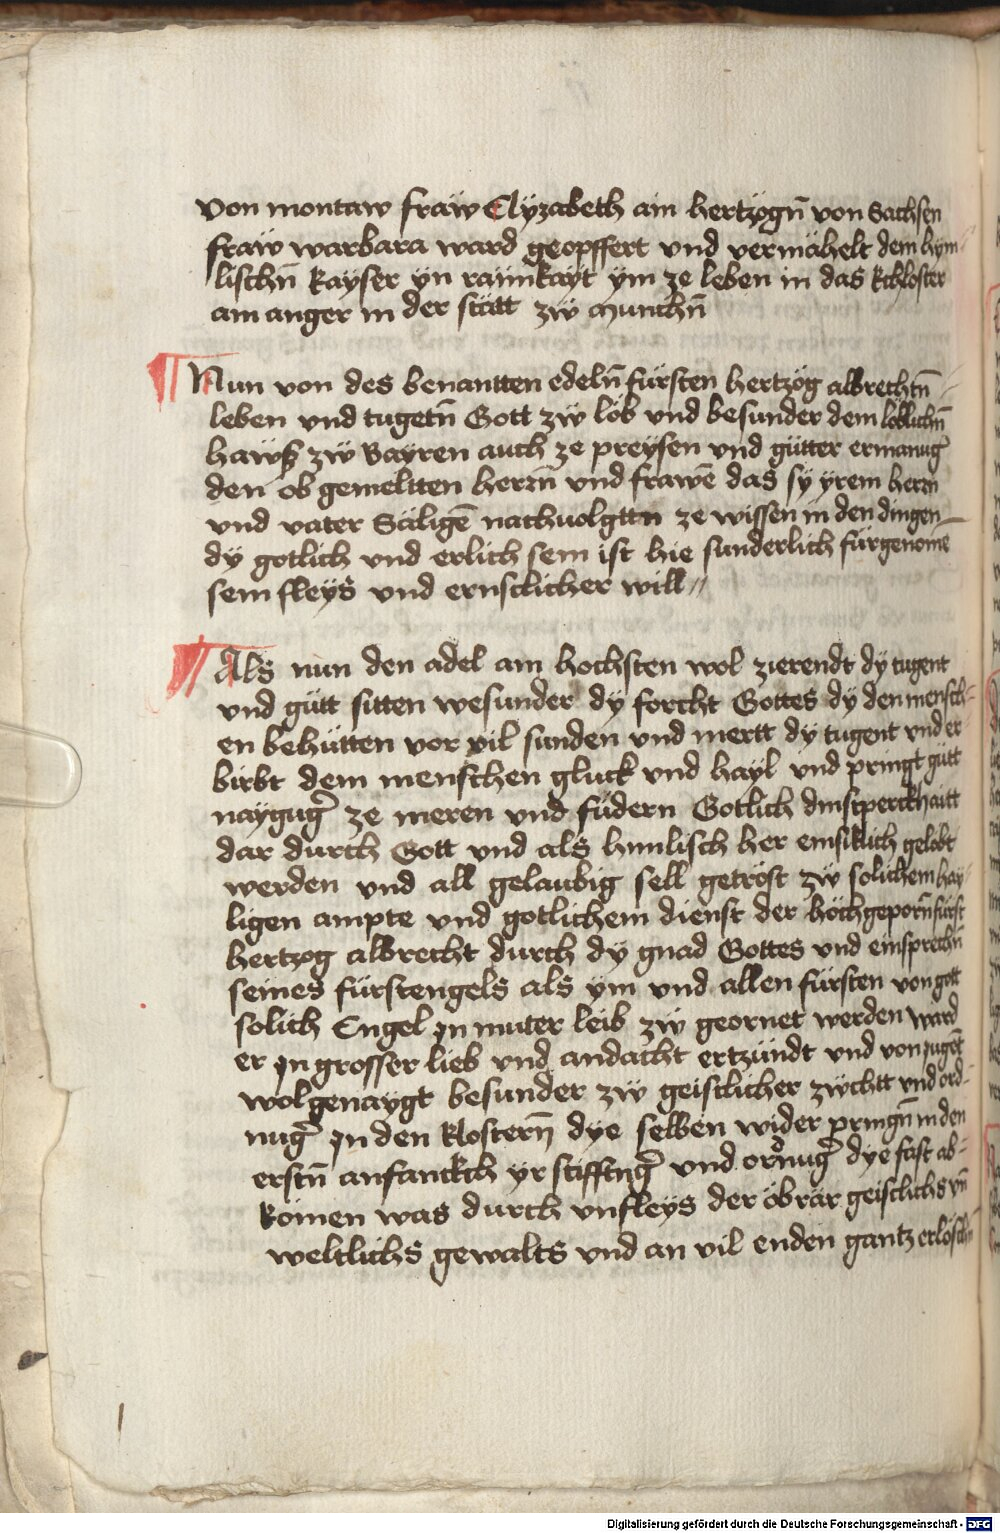 von montaw fraẅ Elyzabeth ain hertzögn̄ von Sachsen
fraẅ warbara ward geopffert vnd vermähelt dem hym
lischn̄ kayser yn rainkäyt ym ze leben in das kchloster
am anger in der stätt zẅ munchn̄
¶ Nun von des benantten edeln̄ fürsten hertzög albrechtn̄
leben vnd tugetn̄ Gott zẅ löb vnd besunder dem löblichn̄
hawß zẅ Bayren auch ze preysen vnd gütter ermanuḡ
den ob gemeltten herrn̄ vnd frawē das sy yrem herrn
vnd vater Säligē nachuolgttn ze wissen in den dingen
dÿ gotlich vnd erlich sein ist hie sunderlich fürgenomē
sein fleÿs vnd ernstlicher will //
¶ Als nun den adel am hochsten wol zierendt dÿ tugent
vnd gütt sitten wesunder dy forcht Gottes dÿ den mensch-
en behütten vor vil sunden vnd mertt dÿ tugent vnd er
birbt dem menschen gluck vnd hayl vnd pringt gütt
nayguḡ ze meren vnd füdern Gotlich dinstperckhaitt
dar durch Gott vnd als himlisch her emsiklich gelobt
werden vnd all gelaubig sell getröst zẅ solichem hay-
ligen ampte vnd gotlichem dienst der höchgeporn̄ fürst
hertzog albrecht durch dÿ gnad Gottes vnd einsprechn̄
seines fürstengels als ym vnd allen fürsten von gott
solich Engel jn muter leib zẅ geornet werden ward
er jn grosser lieb vnd andacht ertzündt vnd von jugēt
wolgenaygt besunder zẅ geistlicher zẅchtt vnd ord-
nuḡ jn den klostern̄ dye selben wider pringn̄ in den
erstn̄ anfanckch yr stifftnḡ vnd ordnuḡ dye fast ab-
komen was durch vnfleys der öbrär geistlichs vn̄
weltlichs gewalts vnd an vil enden gantz erloschn̄
Digitalisierung gefördert durch die Deutsche Forschungsgemeinschaft - DFG